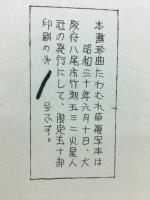 本書珍曲たわむれ草複写本は
昭和三十年六月十日、大
阪府八尾市竹渕五三二火星人
社の発行にして、限定五十部
印刷の氺
号です。